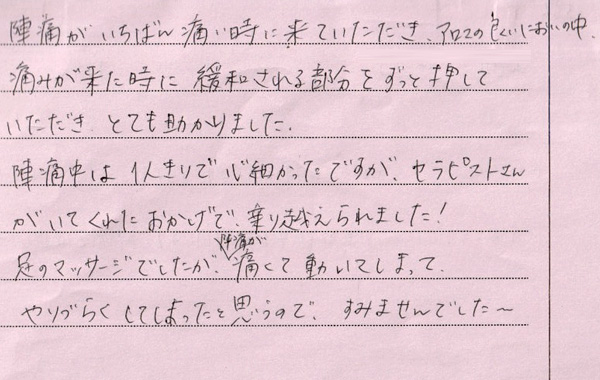 陣痛がいちばん痛い時に来ていただき、アロマの良いにおいの中、
痛みが来た時に 緩和される部分をずっと押して
いただき とても助かりました。
陣痛中は 1人きりで心細かったですが、セラピストさん
がいてくれたおかげで、乗り越えられました!
陣痛が
足のマッサージでしたが、痛くて動いてしまって、
やりづらくしてしまったと思うので、すみませんでした〜